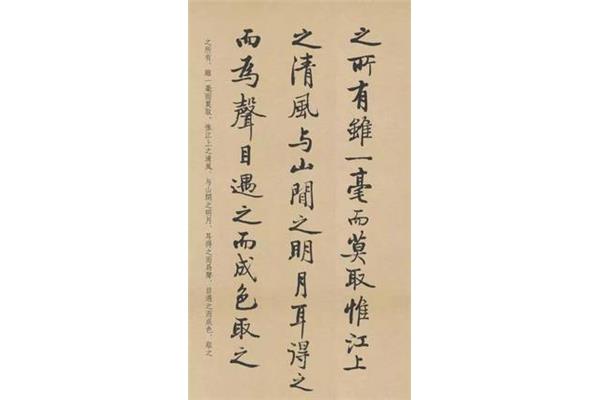 之所有雖一毫而莫取惟江上
之清風与山間之明月耳得之
而為聲目遇之而成色取之
之所有，雖一毫而莫取。惟江上之清風，与山間之明月，耳得之而為聲，目遇之而成色，取之